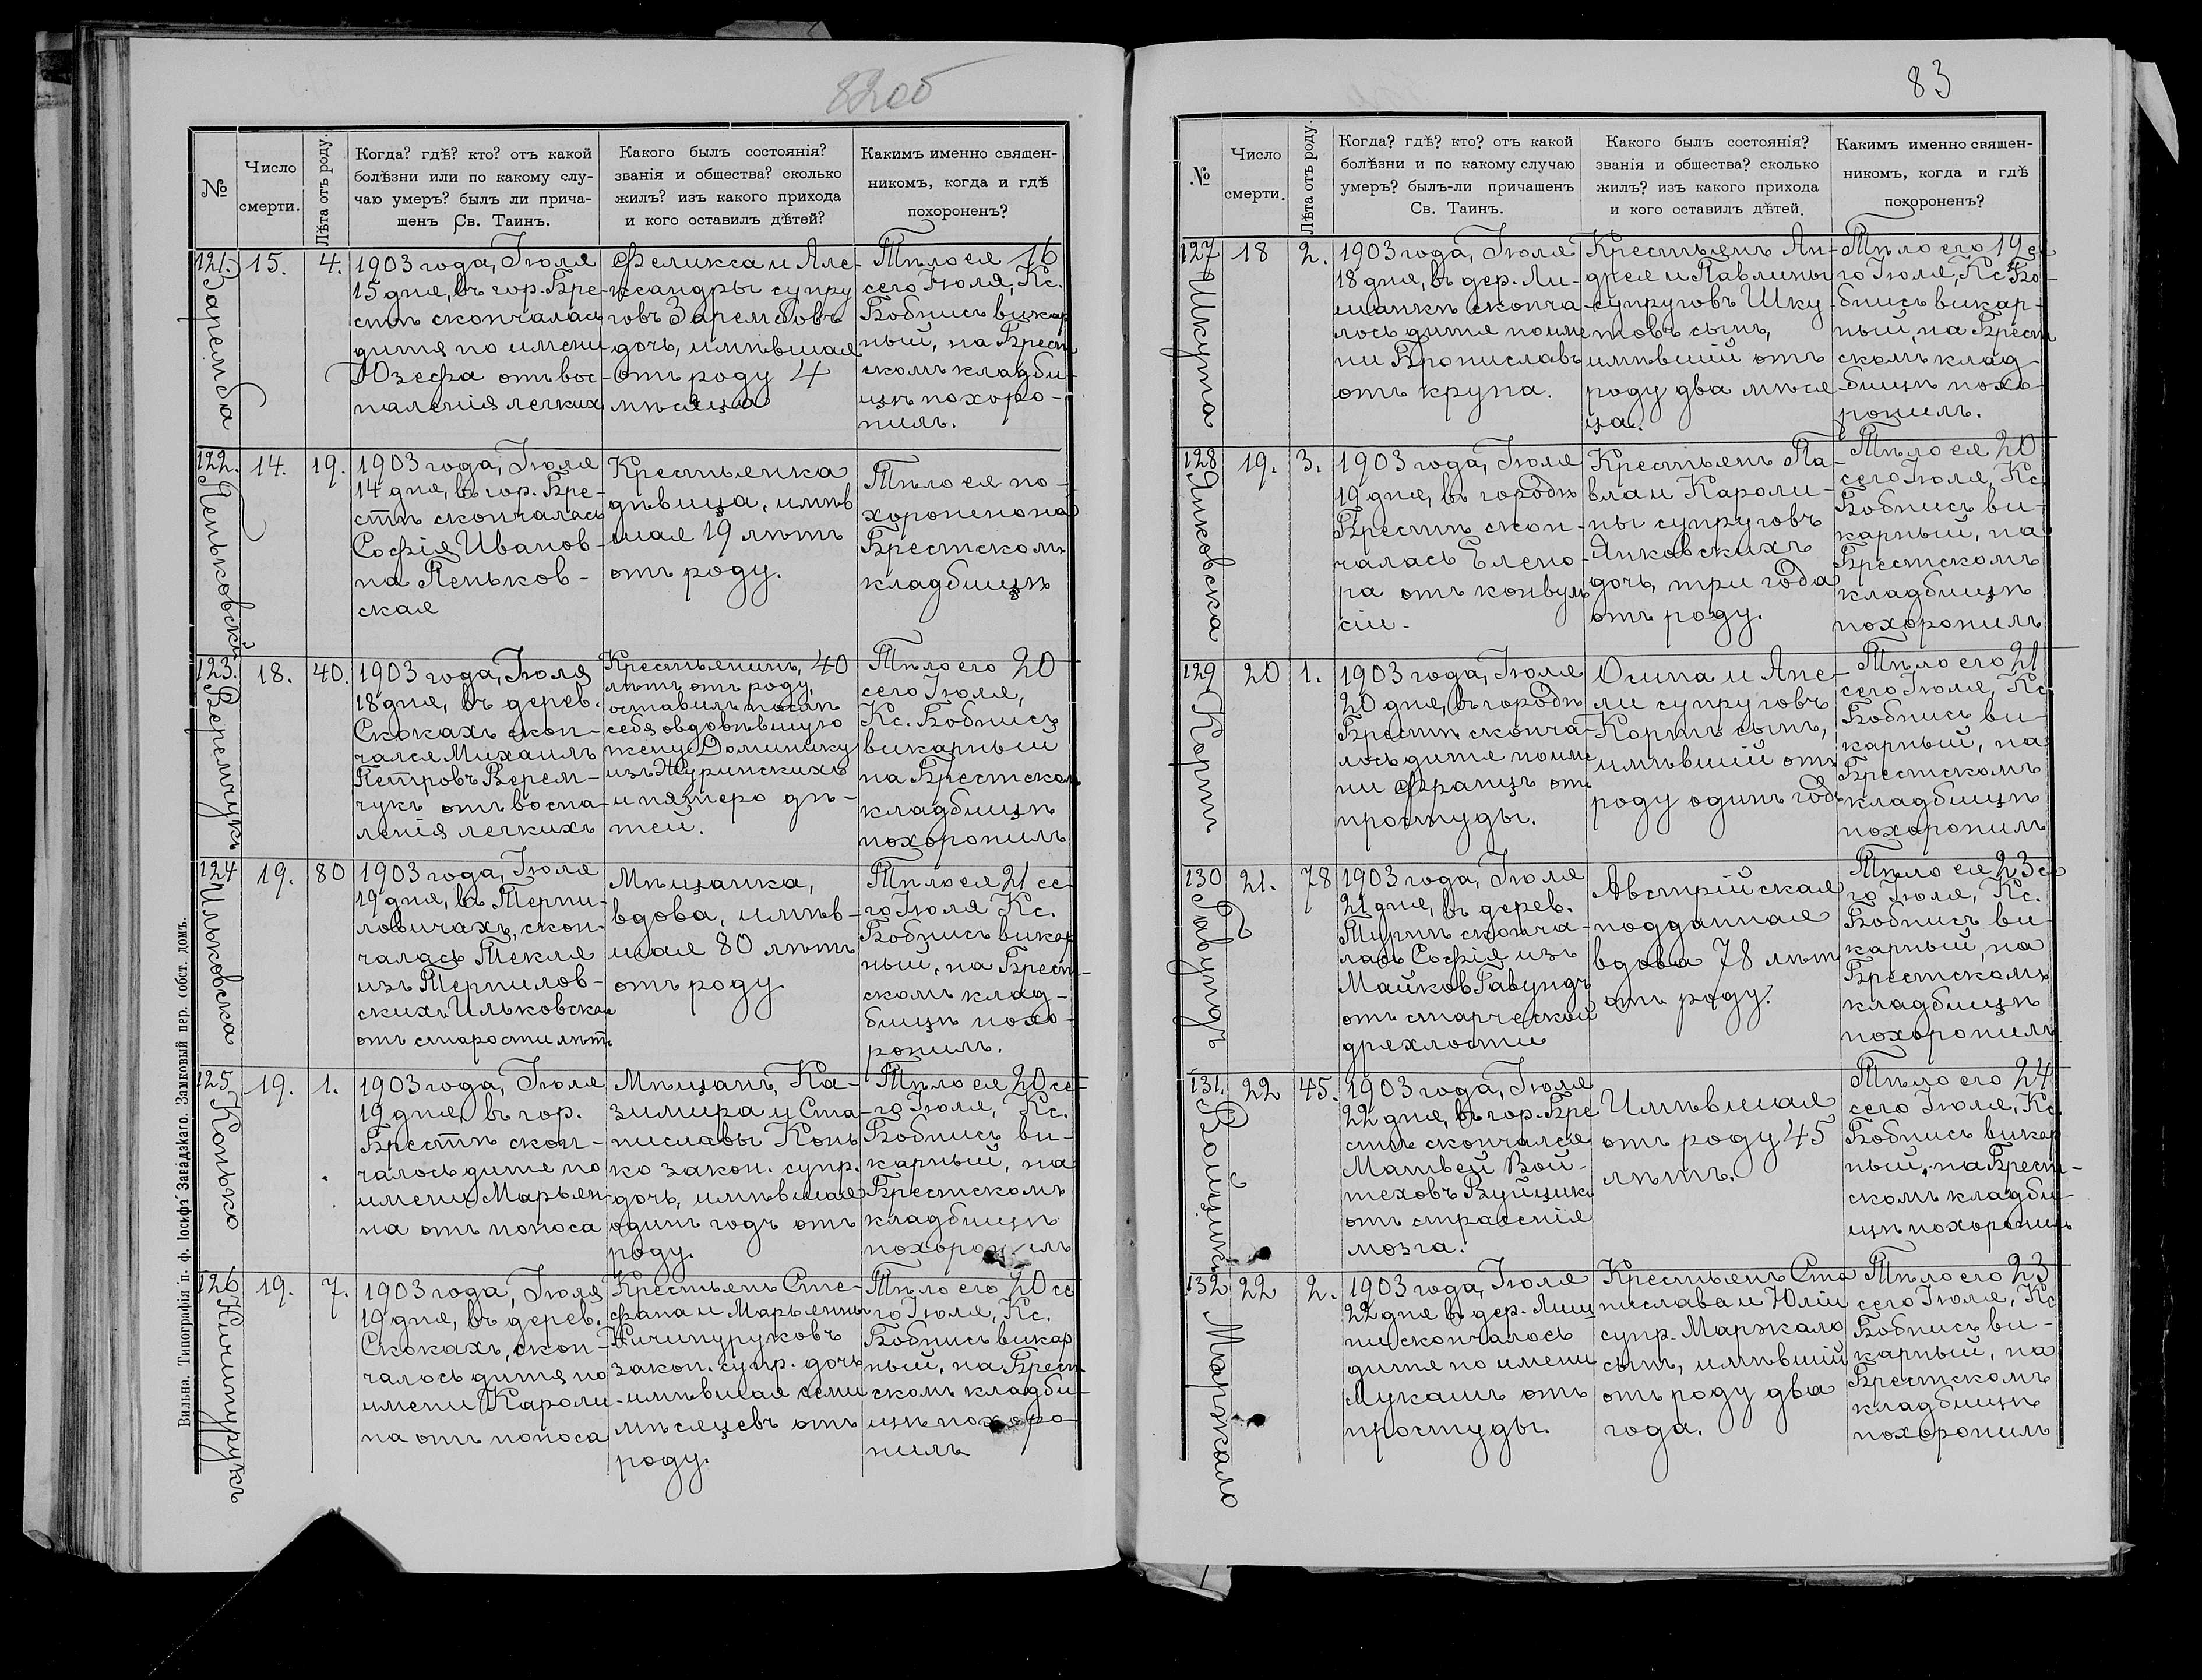 82об
№
Число
смерти.
Лѣта отъ роду.
Когда? гдѣ? кто? отъ какой
болѣзни или по какому слу-
чаю умеръ? былъ ли прича-
щенъ Св. Таинъ.
Какого былъ состоянія?
званія и общества? сколько
жилъ? изъ какого прихода
и кого оставилъ дѣтей?
Какимъ именно священ-
никомъ, когда и гдѣ
похороненъ?
121.
Заремба
15.
4.
1903 года, Іюля
15 дня, въ гор. Бре-
стѣ скончалась
дитя по имени
Юзефа отъ вос-
паленія легкихъ
Феликса и Але-
ксандры супру
говъ Зарембовъ
дочь, имѣвшая
отъ роду 4
мѣсяца
Тѣло ея 16
сего Іюля, Кс.
Бобнисъ викар
ный, на Брест
скомъ кладби-
щѣ похоро-
нилъ.
122.
Пеньковскі
14.
19.
1903 года, Іюля
14 дня, въ гор. Бре-
стѣ скончалась
Софія Иванов-
на Пеньков-
ская
Крестьянка
дѣвица, имѣв
шая 19 лѣтъ
отъ роду.
Тѣло ея по-
хоронено на
Брестскомъ
кладбищѣ
123.
Веремчукъ
18.
40.
1903 года, Іюля
18 дня, въ дерев.
Скокахъ скон-
чался Михаилъ
Петровъ Верем-
чукъ отъ воспа-
ленія легкихъ
Крестьянинъ, 40
лѣтъ отъ роду,
оставилъ послѣ
себя овдовѣвшую
жену Доминику
изъ Журинскихъ
и пятеро дѣ-
тей.
Тѣло его 20
сего Іюля,
Кс. Бобнисъ
викарный
на Брестском
кладбищѣ
похоронилъ
124
Ильковска
19.
80
1903 года, Іюля
19 дня, въ Терпи-
ловичахъ, скон-
чалась Текля
изъ Терпилов-
скихъ Ильковская
отъ старости лѣтъ
Мѣщанка,
вдова, имѣв-
шая 80 лѣтъ
отъ роду
Тѣло ея 21 се-
го Іюля Кс.
Бобнисъ викар
ный, на Брест-
скомъ клад-
бищѣ похо-
ронилъ.
125
Конько
19.
1.
1903 года, Іюля
19 дня, въ гор.
Брестѣ скон-
чалось дитя по
имени Марьян-
на отъ поноса
Мѣщанъ Ка-
зимира и Ста-
ниславы Конь
ко закон. супр.
дочь, имѣвшая
одинъ годъ отъ
роду.
Тѣло ея 20 се-
го Іюля, Кс.
Бобнисъ ви-
карный, на
Брестскомъ
кладбищѣ
похоронилъ
126
Ничипурукъ
19.
7.
1903 года, Іюля
19 дня, въ дерев.
Скокахъ, скон-
чалось дитя по
имени Кароли-
на отъ поноса
Крестьянъ Сте-
фана и Марьянны
Ничипуруковъ
закон. супр. дочь
имѣвшая семи
мѣсяцевъ отъ
роду.
Тѣло его 20 се
го Іюля, Кс.
Бобнисъ викар
ный, на Брест
скомъ кладби-
щѣ похоро-
нилъ
Вильна. Типографія п. ф. Іосифъ Завадзкаго. Замковый пер. собст. домъ.
83
№
Число
смерти.
Лѣта отъ роду.
Когда? гдѣ? кто? отъ какой
болѣзни и по какому случаю
умеръ? былъ-ли причащенъ
Св. Таинъ.
Какого былъ состоянія?
званія и общества? сколько
жилъ? изъ какого прихода
и кого оставилъ дѣтей.
Какимъ именно священ-
никомъ, когда и гдѣ
похороненъ?
127
Шкута
18
2.
1903 года, Іюля
18 дня, въ дер. Ли-
шанкѣ сконча-
лось дитя по име
ни Брониславъ
отъ крупа.
Крестьянъ Ан-
дрея и Павлины
супруговъ Шку
товъ сынъ,
имѣвшій отъ
роду два мѣся
ца.
Тѣло его 19 се
го Іюля, Кс. Бо-
бнисъ викар-
ный, на Брест
скомъ клад-
бищѣ похо-
ронилъ.
128
Янковска
19.
3.
1903 года, Іюля
19 дня, въ городѣ
Брестѣ скон-
чалась Елено-
ра отъ конвуль
сіи.
Крестьянъ Па-
вла и Кароли-
ны супруговъ
Янковскихъ
дочь, три года
отъ роду.
Тѣло ея 20
сего Іюля, Кс.
Бобнисъ ви-
карный, на
Брестскомъ
кладбищѣ
похоронилъ
129
Кортъ
20
1.
1903 года, Іюля
20 дня, въ городѣ
Брестѣ сконча-
лось дитя по име
ни Францъ отъ
простуды.
Осипа и Ане-
ли супруговъ
Кортъ сынъ,
имѣвшій отъ
роду одинъ годъ
Тѣло его 21
сего Іюля, Кс.
Бобнисъ ви-
карный, на
Брестскомъ
кладбищѣ
похоронилъ
130
Равундъ
21.
78
1903 года, Іюля
21 дня, въ дерев.
Тюрнѣ сконча-
лась Софія изъ
Майковъ Равундъ
отъ старческой
дряхлости
Австрійская
подданная
вдова 78 лѣтъ
отъ роду.
Тѣло ея 23 се
го Іюля, Кс.
Бобнисъ ви-
карный, на
Брестскомъ
кладбищѣ
похоронилъ
131.
22
45.
1903 года, Іюля
22 дня, въ гор. Бре
стѣ скончался
Матвей Вой-
теховъ Вуйцикъ
отъ стрясенія
мозга.
Имѣвшая
отъ роду 45
лѣтъ.
Тѣло его 24
сего Іюля, Кс.
Бобнисъ викар
ный, на Брест-
скомъ кладби-
щѣ похоронилъ
132
Маржкало
22
2.
1903 года, Іюля
22 дня въ дер. Лищ
ни скончалось
дитя по имени
Лукашъ отъ
простуды.
Крестьянъ Ста
нислава и Юліи
супр. Маржкало
сынъ, имѣвшій
отъ роду два
года.
Тѣло его 23
сего Іюля, Кс
Бобнисъ ви-
карный, на
Брестскомъ
кладбищѣ
похоронилъ